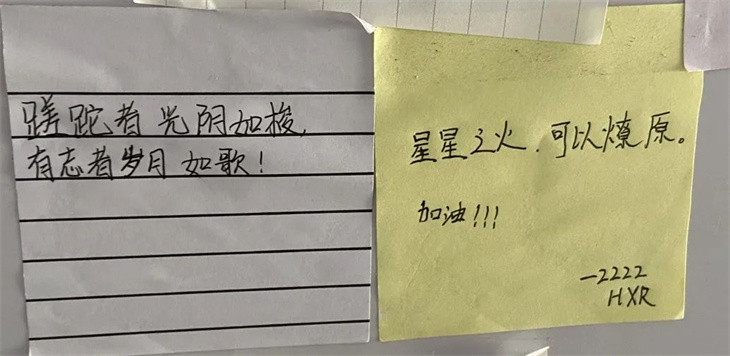 蹉跎者光阴如梭,
有志者岁月如歌!
星星之火,可以燎原。
加油!!!
—2222
HXR